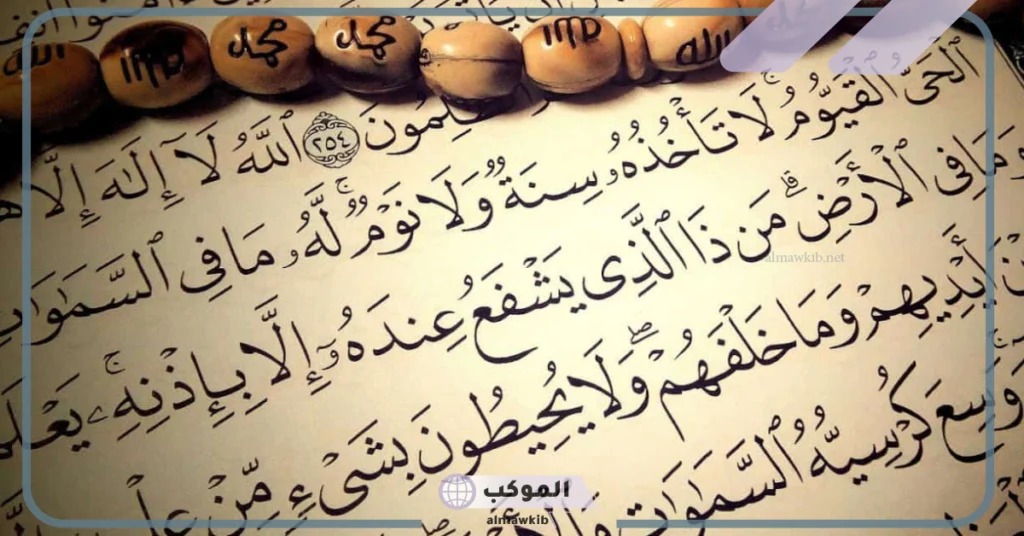 الله محمد محمد الله
ـلِمُونَ ٢٥٤ ٱللَّهُ لَآ إِلَـٰهَ إِلَّا
ٱلْحَىُّ ٱلْقَيُّومُ ۚ لَا تَأْخُذُهُۥ سِنَةٌ وَلَا نَوْمٌ ۚ لَّهُۥ مَا فِى ٱلسَّمَـٰوَٰتِ
وَمَا فِى ٱلْأَرْضِ ۗ مَن ذَا ٱلَّذِى يَشْفَعُ عِندَهُۥٓ إِلَّا بِإِذْنِهِۦ ۚ يَعْلَمُ
أَيْدِيهِمْ وَمَا خَلْفَهُمْ ۖ وَلَا يُحِيطُونَ بِشَىْءٍ مِّنْ
وَسِعَ كُرْسِيُّهُ ٱلسَّمَـٰوَٰتِ
almawkib.net
الموكب
almawkib